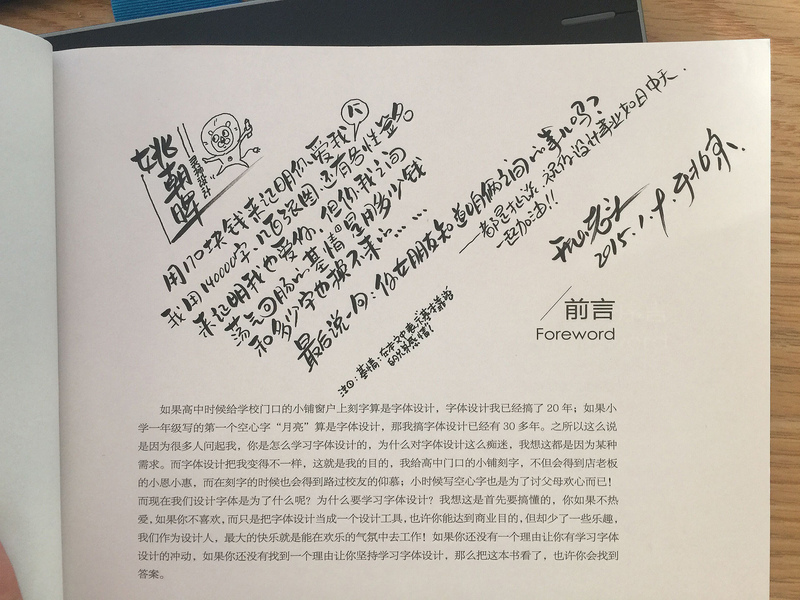 姚朝晖
八
用110块钱来证明你爱我
我用140000字、几百张图、还有各性签名
来证明我也爱你,但你我之间
荡气回肠的基情①是用多少钱
和多少字也换不来的……
最后说一句:你女朋友知道咱俩之间的事儿吗?
——都是扯谈 祝你设计事业如日中天.
一起加油!!
2015.1.9.于北京.
注①:基情:在本文中表示基本前提
的兄弟感情!
前言
Foreword
如果高中时候给学校门口的小铺窗户上刻字算是字体设计,字体设计我已经搞了 20 年;如果小
学一年级写的第一个空心字“月亮”算是字体设计,那我搞字体设计已经有 30 多年。之所以这么说
是因为很多人问起我,你是怎么学习字体设计的,为什么对字体设计这么痴迷,我想这都是因为某种
需求。而字体设计把我变得不一样,这就是我的目的,我给高中门口的小铺刻字,不但会得到店老板
的小恩小惠,而在刻字的时候也会得到路过校友的仰慕;小时候写空心字也是为了讨父母欢心而已!
而现在我们设计字体是为了什么呢?为什么要学习字体设计?我想这是首先要搞懂的,你如果不热
爱,如果你不喜欢,而只是把字体设计当成一个设计工具,也许你能达到商业目的,但却少了一些乐趣,
我们作为设计人,最大的快乐就是能在欢乐的气氛中去工作!如果你还没有一个理由让你有学习字体
设计的冲动,如果你还没有找到一个理由让你坚持学习字体设计,那么把这本书看了,也许你会找到
答案。